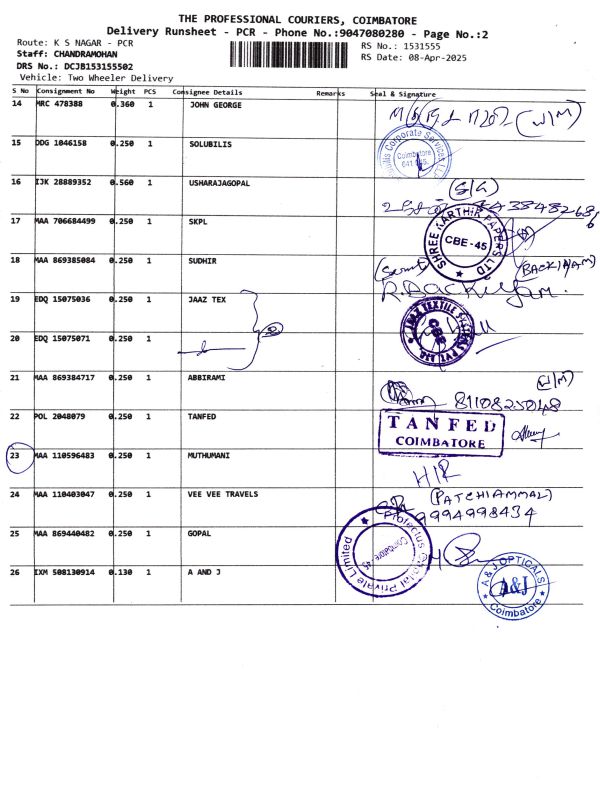 THE PROFESSIONAL COURIERS, COIMBATORE
Delivery Runsheet - PCR - Phone No.:9047080280 - Page No.:2
Route: K S NAGAR - PCR
RS No.: 1531555
Staff: CHANDRAMOHAN
RS Date: 08-Apr-2025
DRS No.: DCJB153155502
Vehicle: Two Wheeler Delivery
S No Consignment No Weight PCS Consignee Details Remarks Seal & Signature
14 MRC 478388 0.360 1 JOHN GEORGE
(W/M)
15 DDG 1046158 0.250 1 SOLUBILIS
Corporate Services
Coimbatore
16 IJK 28889352 0.560 1 USHARAJAGOPAL
(S/G)
17 MAA 706684499 0.250 1 SKPL
SHREE KARTHIK PAPERS LTD
CBE-45
18 MAA 869385084 0.250 1 SUDHIR
19 EDQ 15075036 0.250 1 JAAZ TEX
JAAZ TEXTILE SYSTEMS PVT LTD
CBE
20 EDQ 15075071 0.250 1
21 MAA 869384717 0.250 1 ABBIRAMI
(W/M)
8110825048
22 POL 2048079 0.250 1 TANFED
TANFED
COIMBATORE
23 MAA 110596483 0.250 1 MUTHUMANI
H/R
24 MAA 110403047 0.250 1 VEE VEE TRAVELS
(PATCHIAMMAL)
9994998434
25 MAA 869440482 0.250 1 GOPAL
Private Limited
Coimbatore 45
26 IXM 508130914 0.130 1 A AND J
A & J OPTICALS
A&J
Coimbatore